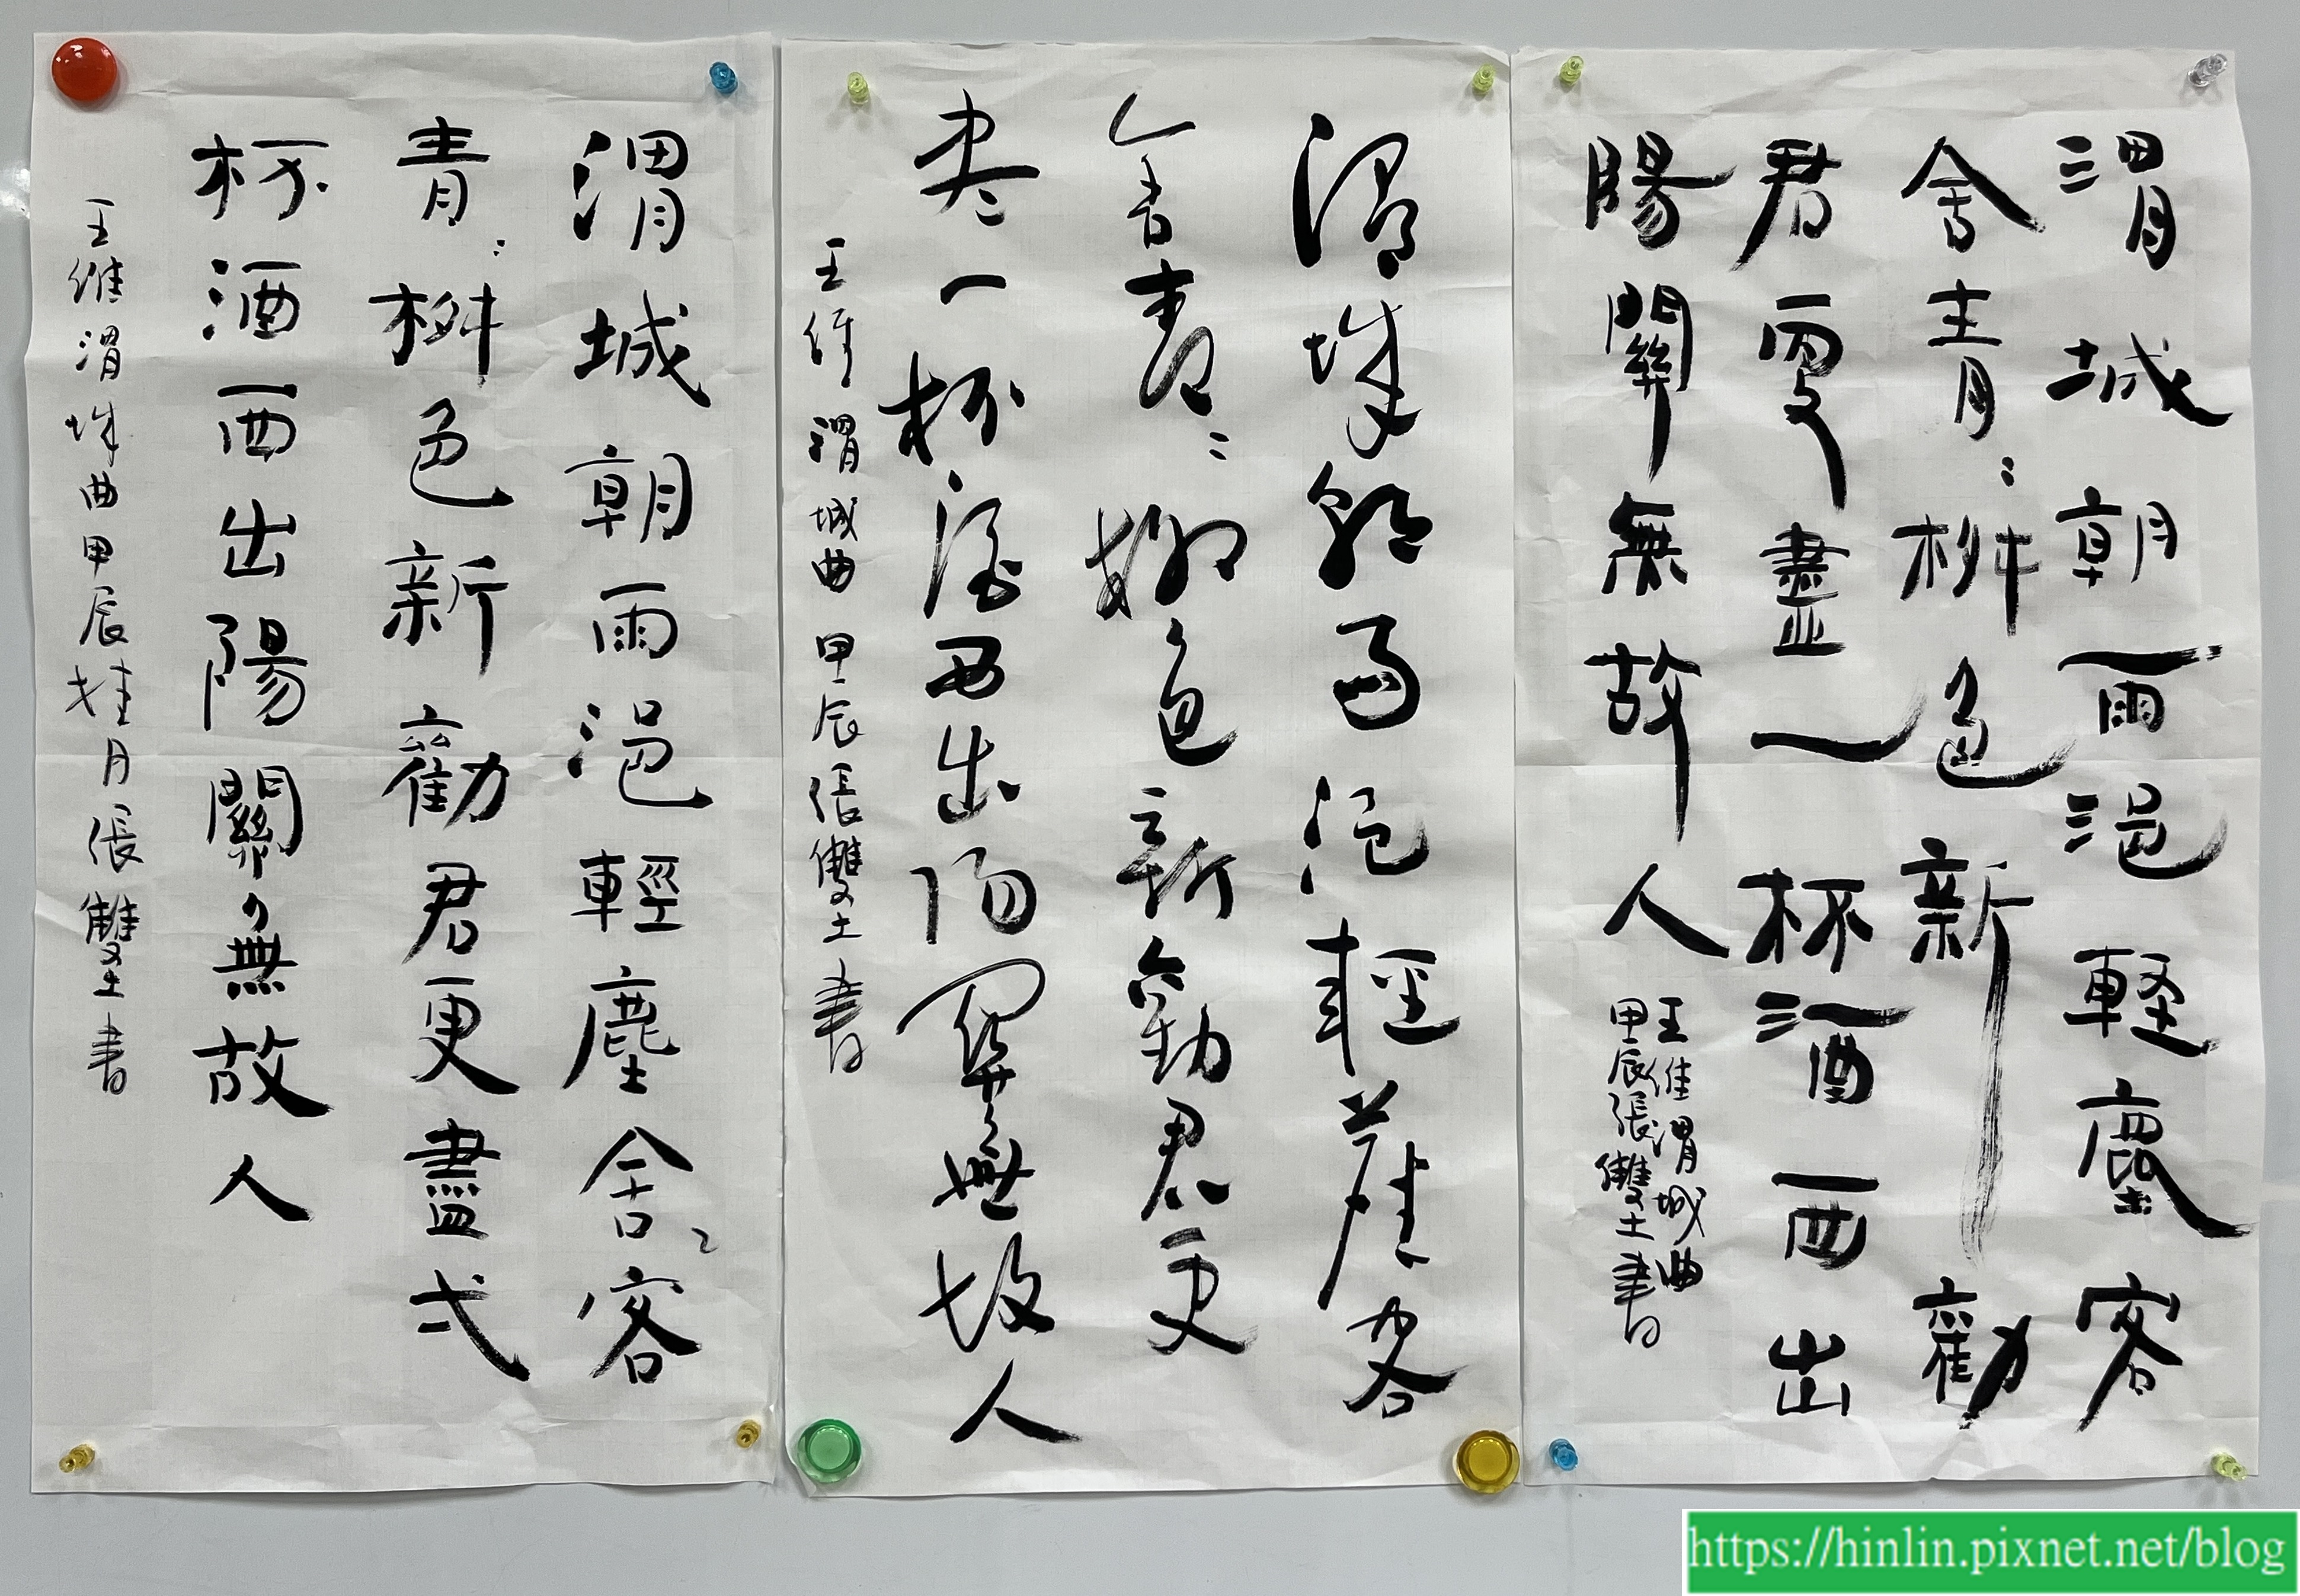 渭城朝雨浥軽塵客
舍青々柳色新勸
君更盡一杯酒西出
陽關無故人
王維渭城曲
甲辰張雙土書
渭城朝雨浥輕塵客
舍青々柳色新勸君更
尽一杯酒西出陽關無故人
王維渭城曲甲辰張雙土書
渭城朝雨浥輕塵舍客
青々柳色新勸君更盡弌
杯酒西出陽關無故人
王維渭城曲甲辰桂月張雙土書
https://hinlin.pixnet.net/blog